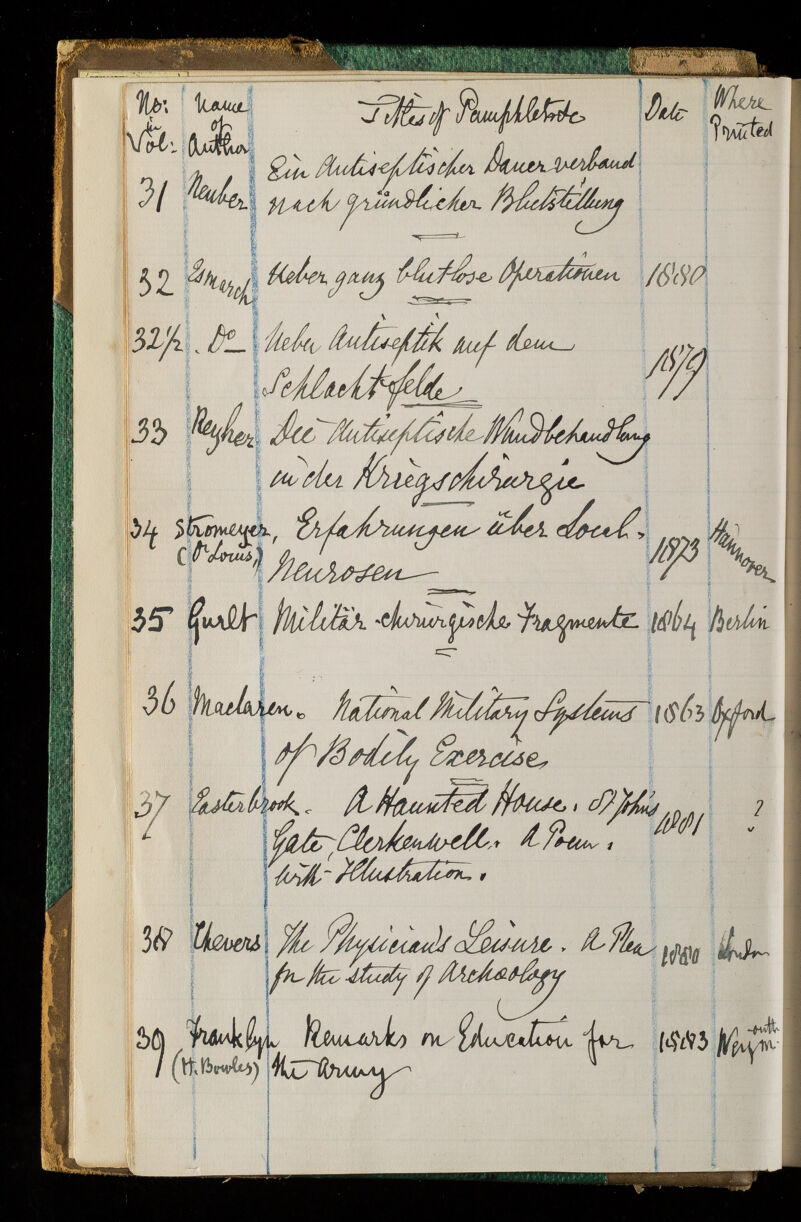 No: in Vol: Name of Author Titles of Pamphlets &c Date Where Printed
Ein Antiseptischer Dauerverband
31 Neuber nach gründlicher Blutstillung
32 Esmarch Ueber ganz blutlose Operationen 1880
32½ . Do Ueber Antiseptik auf dem
Schlachtfelde 1879
33 Reyher Die Antiseptische Wundbehandlung
in der Kriegschirurgie
34 Stromeyer, Erfahrungen über Local- 1873 Hannover
(Dr Louis,) Neurosen
35 Gurlt Militär-chirurgische Fragmente 1864 Berlin
36 Maclaren. National Military Systems 1863 Oxford
of Bodily Exercise
37 Easterbrook. A Haunted House. St John's 1881 ?
Gate, Clerkenwell. A Poem.
with Illustration.
38 Chevers The Physician's Leisure. A Plea 1880 London
for the study of Archæology
39 Franklyn Remarks on Education for 1883 Weymouth
(H. Bowles) the Army